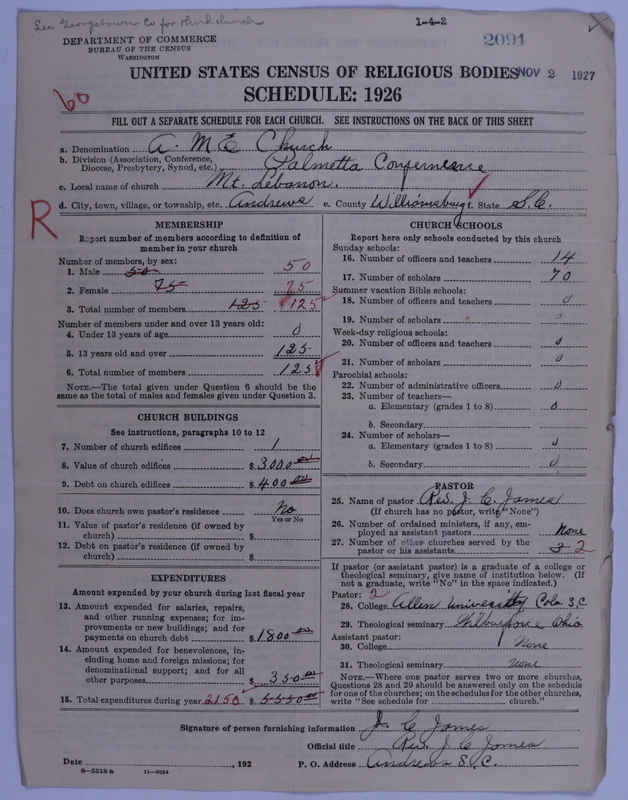 See Georgetown Co for third church
1-4-2
DEPARTMENT OF COMMERCE
BUREAU OF THE CENSUS
WASHINGTON
2091
UNITED STATES CENSUS OF RELIGIOUS BODIES NOV 2 1927
60
SCHEDULE: 1926
FILL OUT A SEPARATE SCHEDULE FOR EACH CHURCH. SEE INSTRUCTIONS ON THE BACK OF THIS SHEET
a. Denomination A. M E Church
b. Division (Association, Conference, Diocese, Presbytery, Synod, etc.) Palmetta Conference
c. Local name of church Mt. Lebanon.
d. City, town, village, or township, etc. Andrews e. County Williamsburg f. State S.C.
R
MEMBERSHIP
Report number of members according to definition of
member in your church
Number of members, by sex:
1. Male 50 50
2. Female 75 75
3. Total number of members 125 125
Number of members under and over 13 years old:
4. Under 13 years of age 0
5. 13 years old and over 125
6. Total number of members 125
NOTE.—The total given under Question 6 should be
same as the total of males and females given under Question 3.
CHURCH BUILDINGS
See instructions, paragraphs 10 to 12
7. Number of church edifices 1
8. Value of church edifices $ 3000 00
9. Debt on church edifices $ 400 00
10. Does church own pastor's residence No
Yes or No
11. Value of pastor's residence (if owned by
church) $
12. Debt on pastor's residence (if owned by
church) $
EXPENDITURES
Amount expended by your church during last fiscal year
13. Amount expended for salaries, repairs,
and other running expenses; for im-
provements or new buildings; and for
payments on church debt $ 1800 00
14. Amount expended for benevolences, in-
cluding home and foreign missions; for
denominational support; and for all
other purposes $ 350 00
15. Total expenditures during year 2150 $ 5550 00
CHURCH SCHOOLS
Report here only schools conducted by this church
Sunday schools:
16. Number of officers and teachers 14
17. Number of scholars 70
Summer vacation Bible schools:
18. Number of officers and teachers 0
19. Number of scholars 0
Week-day religious schools:
20. Number of officers and teachers 0
21. Number of scholars 0
Parochial schools:
22. Number of administrative officers 0
23. Number of teachers—
a. Elementary (grades 1 to 8) 0
b. Secondary
24. Number of scholars—
a. Elementary (grades 1 to 8) 0
b. Secondary 0
PASTOR
25. Name of pastor Rev. J. C. James
(If church has no pastor, write "None")
26. Number of ordained ministers, if any, em-
ployed as assistant pastors None
27. Number of other churches served by the
pastor or his assistants 3 2
If pastor (or assistant pastor) is a graduate of a college or
theological seminary, give name of institution below. (If
not a graduate, write "No" in the space indicated.)
Pastor: 2
28. College Allen University Cola S.C
29. Theological seminary Ohio
Assistant pastor:
30. College None
31. Theological seminary None
NOTE.—Where one pastor serves two or more churches,
Questions 28 and 29 should be answered only on the schedule
for one of the churches; on the schedules for the other churches,
write "See schedule for church."
Signature of person furnishing information J. C James
Official title Rev. J. C James
Date , 192 P. O. Address Andrews S.C.
8-5518 a 11-9064